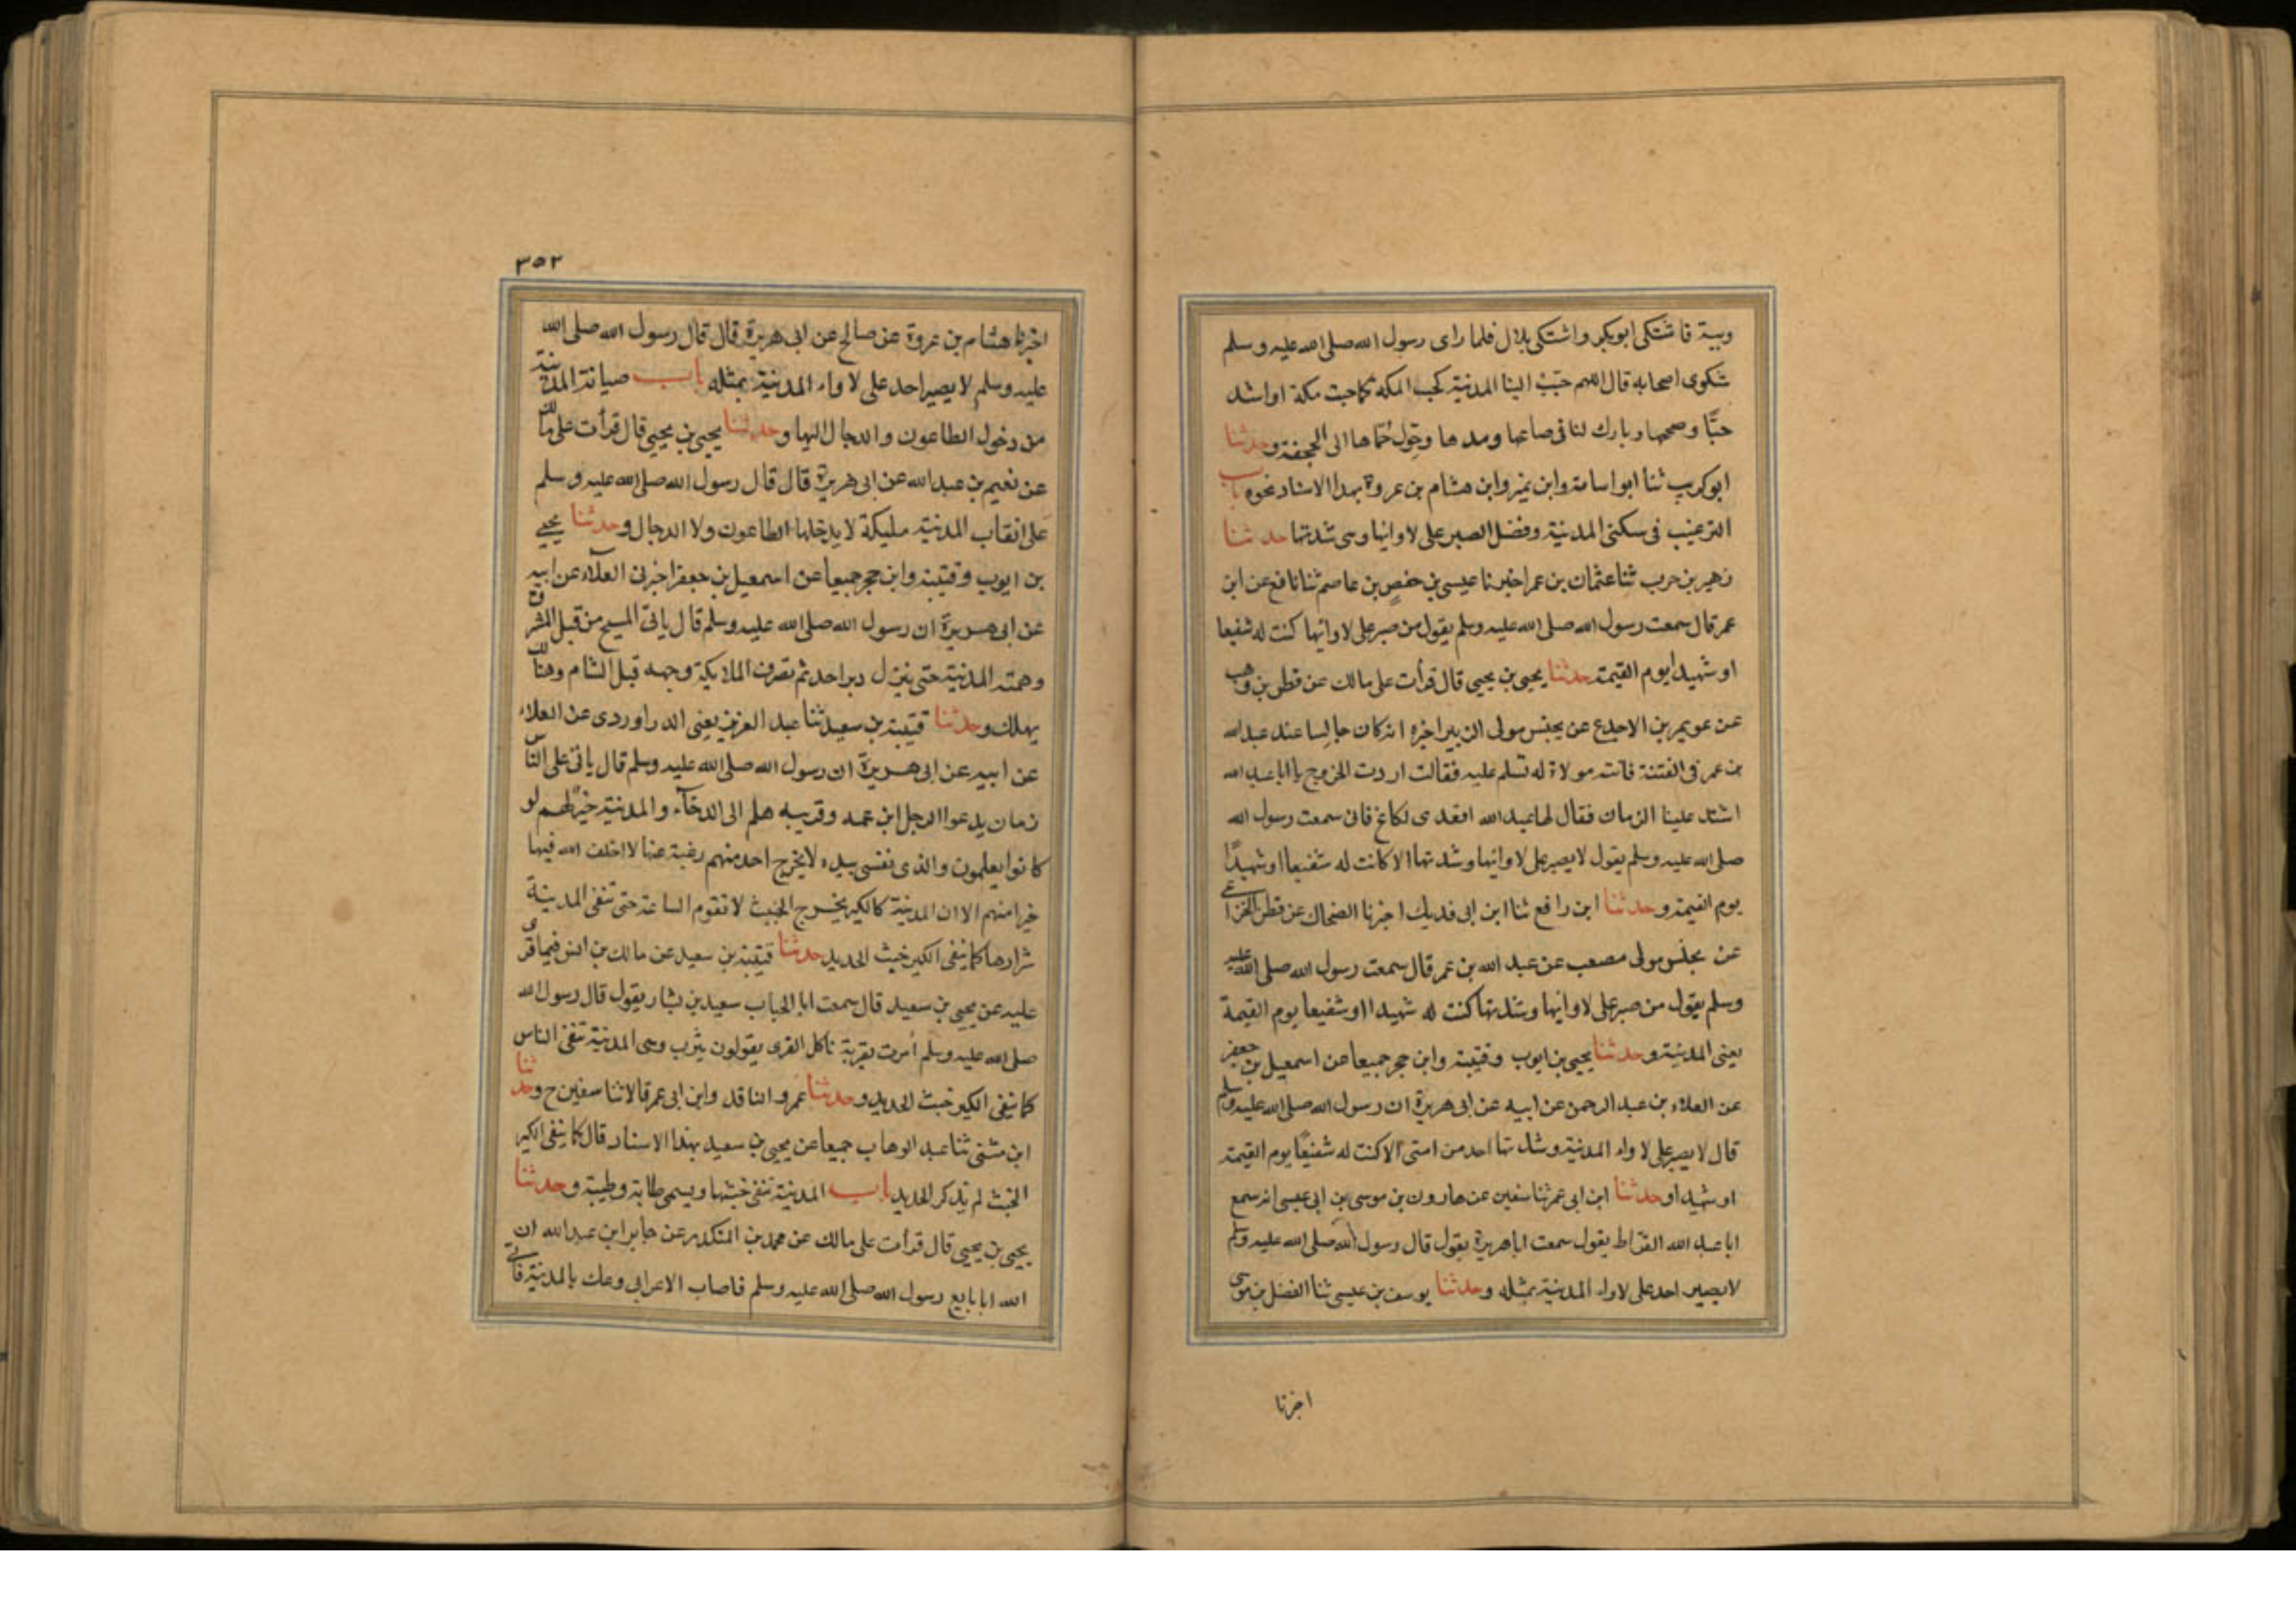 وبيئة فاشتكى ابوبكر واشتكى بلال فلما راى رسول الله صلى الله عليه وسلم
شكوى اصحابه قال اللهم حبّب الينا المدينة كحب المكة كما حببت مكة او اشد
حبّا وصححها وبارك لنا فى صاعها ومدها وحوّل حمّاها الى الجحفة وحدثنا
ابوكريب ثنا ابو اسامة وابن نمير وابن هشام بن عروة بهذا الاسناد نحوه باب
الترغيب فى سكنى المدينة وفضل الصبر على لاوائها وسى شدتها حدثنا
زهير بن حرب ثنا عثمان بن عمر اخبرنا عيسى بن حفص بن عاصم ثنا نافع عن ابن
عمر قال سمعت رسول الله صلى الله عليه وسلم يقول من صبر على لاوائها كنت له شفيعا
او شهيدا يوم القيمة حدثنا يحيى بن يحيى قال قرأت على مالك عن قطن بن وهب
عن عويمر بن الاجدع عن يحنس مولى الزبير اخبره انه كان جالسا عند عبد الله
بن عمر فى الفتنة فاتته مولاة له تسلم عليه فقالت اردت الخروج يا ابا عبد الله
اشتد علينا الزمان فقال لها عبد الله اقعدى لكاع فانى سمعت رسول الله
صلى الله عليه وسلم يقول لا يصبر على لاوائها وشدتها الا كانت له شفيعا او شهيدًا
يوم القيمة وحدثنا ابن رافع ثنا ابن ابى فديك اخبرنا الضحاك عن قطن الخزاعى
عن يحنس مولى مصعب عن عبد الله بن عمر قال سمعت رسول الله صلى الله عليه
وسلم يقول من صبر على لاوائها وشدتها كنت له شهيدا او شفيعا يوم القيمة
يعنى المدينة وحدثنا يحيى بن ايوب وقتيبة وابن حجر جميعا عن اسمعيل بن جعفر
عن العلاء بن عبد الرحمن عن ابيه عن ابى هريرة ان رسول الله صلى الله عليه وسلم
قال لا يصبر على لاواء المدينة وشدتها احد من امتى الا كنت له شفيعًا يوم القيمة
او شهيدا وحدثنا ابن ابى عمر ثنا سفين عن هارون بن موسى بن ابى عيسى انه سمع
ابا عبد الله القرّاط يقول سمعت ابا هريرة يقول قال رسول الله صلى الله عليه وسلم
لا يصبر احد على لاواء المدينة بمثله وحدثنا يوسف بن عيسى ثنا الفضل بن موسى
اخبرنا
٣٥٢
اخبرنا هشام بن عروة عن صالح عن ابى هريرة قال قال رسول الله صلى الله
عليه وسلم لا يصبر احد على لاواء المدينة بمثله باب صيانة المدينة
من دخول الطاعون والدجال اليها وحدثنا يحيى بن يحيى قال قرأت على مالك
عن نعيم بن عبد الله عن ابى هريرة قال قال رسول الله صلى الله عليه وسلم
على انقاب المدينة مليكة لا يدخلها الطاعون ولا الدجال وحدثنا يحيى
بن ايوب وقتيبة وابن حجر جميعا عن اسمعيل بن جعفر اخبرنى العلاء عن ابيه
عن ابى هريرة ان رسول الله صلى الله عليه وسلم قال ياتى المسيح من قبل المشرق
وهمته المدينة حتى ينزل دبر احد ثم تصرف الملايكة وجهه قبل الشام وهنالك
يهلك وحدثنا قتيبة بن سعيد ثنا عبد العزيز يعنى الدراوردى عن العلاء
عن ابيه عن ابى هريرة ان رسول الله صلى الله عليه وسلم قال ياتى على الناس
زمان يدعوا الرجل ابن عمه وقريبه هلم الى الرخاء والمدينة خير لهم لو
كانوا يعلمون والذى نفسى بيده لا يخرج احد منهم رغبة عنها الا اخلف الله فيها
خيرا منهم الا ان المدينة كالكير يخرج الخبث لا تقوم الساعة حتى تنفى المدينة
شرارها كما ينفى الكير خبث الحديد حدثنا قتيبة بن سعيد عن مالك بن انس فيما قرى
عليه عن يحيى بن سعيد قال سمعت ابا الحباب سعيد بن يشار يقول قال رسول الله
صلى الله عليه وسلم أمرت بقرية تاكل القرى يقولون يثرب وهى المدينة تنفى الناس
كما ينفى الكير خبث الحديد وحدثنا عمرو الناقد وابن ابى عمر قالا ثنا سفين ح وحدثنا
ابن مثنى ثنا عبد الوهاب جميعا عن يحيى بن سعيد بهذا الاسناد قال كما ينفى الكير
الخبث لم يذكر الحديد باب المدينة تنفى خبثها ويسمى طابة وطيبة وحدثنا
يحيى بن يحيى قال قرأت على مالك عن محمد بن المنكدر عن جابر ابن عبد الله ان
الله ابا بايع رسول الله صلى الله عليه وسلم فاصاب الاعرابى وعك بالمدينة فاتى